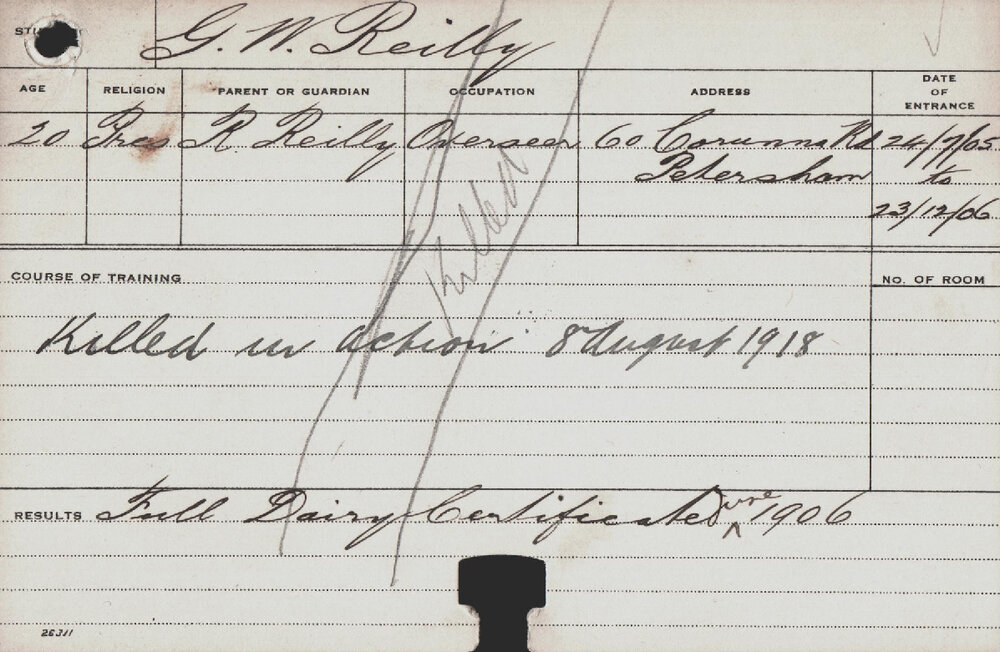 G. W. Reilly
AGE RELIGION PARENT OR GUARDIAN OCCUPATION ADDRESS DATE OF ENTRANCE
20 Pres R. Reilly Overseer 60 Corunna Rd 24/7/05
Petersham to
23/12/06
Killed
COURSE OF TRAINING NO. OF ROOM
Killed in action 8 August 1918
RESULTS Full Dairy Certificate June 1906
26311